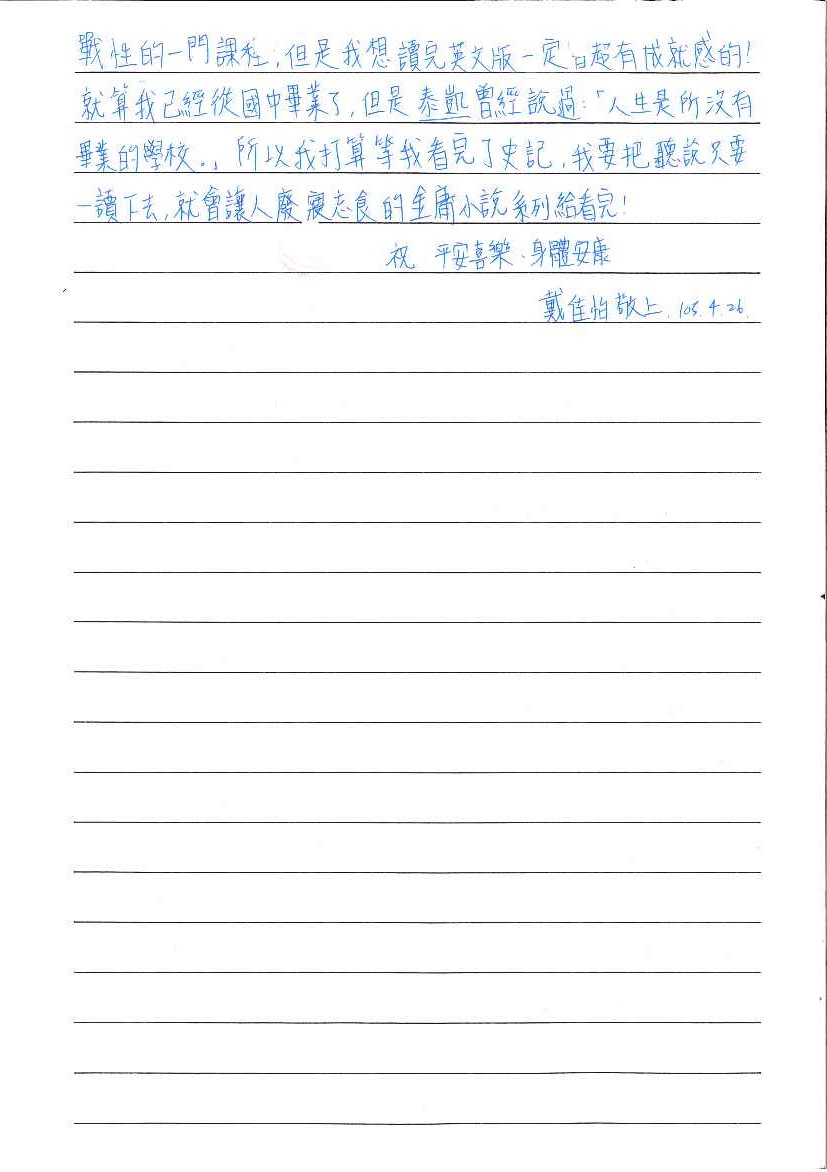 戰性的一門課程，但是我想讀完英文版一定會超有成就感的！
就算我已經從國中畢業了，但是泰凱曾經說過：「人生是所沒有
畢業的學校。」所以我打算等我看完了史記，我要把聽說只要
一讀下去，就會讓人廢寢忘食的金庸小說系列給看完！
祝 平安喜樂、身體安康
戴佳怡敬上. 105. 4. 26.